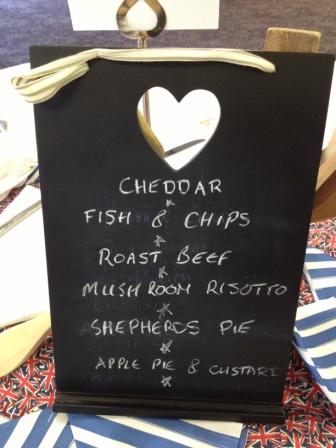 CHEDDAR
FISH & CHIPS
ROAST BEEF
MUSHROOM RISOTTO
SHEPHERDS PIE
APPLE PIE & CUSTARD